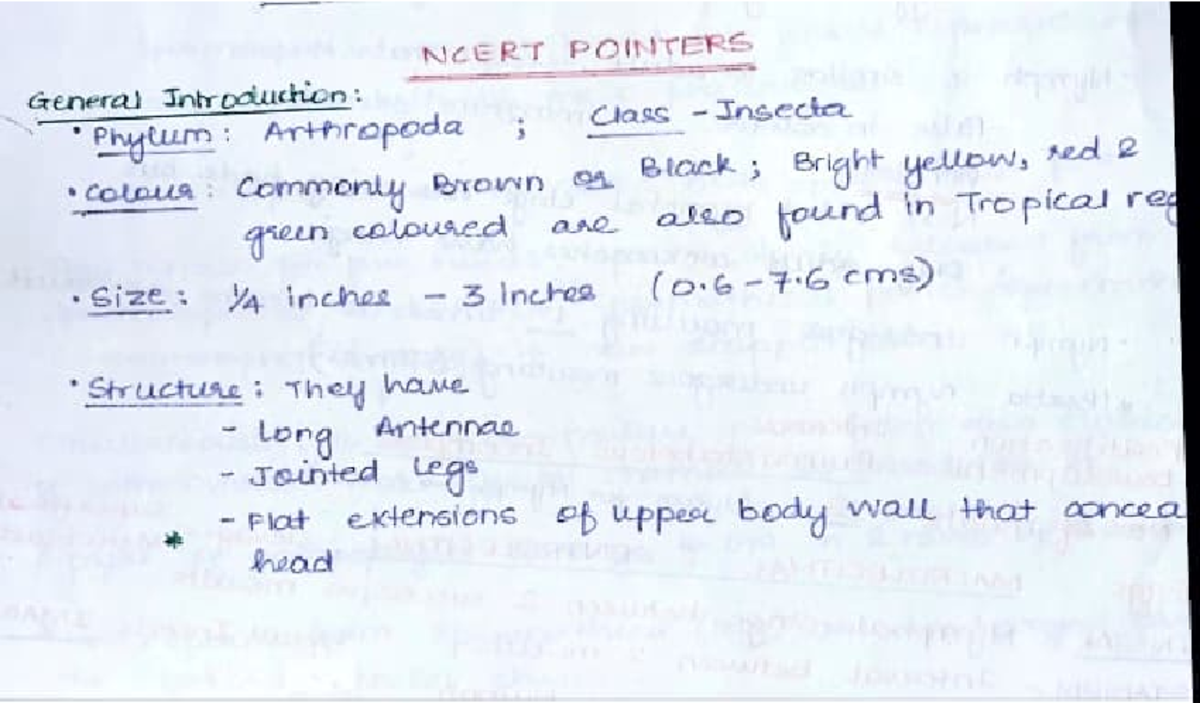 NCERT POINTERS
General Introduction:
• Phylum: Arthropoda ; Class - Insecta
• Colour: Commonly Brown or Black; Bright yellow, red &
green coloured are also found in Tropical reg
• Size: 1/4 inches - 3 Inches (0.6-7.6 cms)
• Structure: They have
- Long Antennae
- Jointed Legs
- Flat extensions of upper body wall that concea
* head